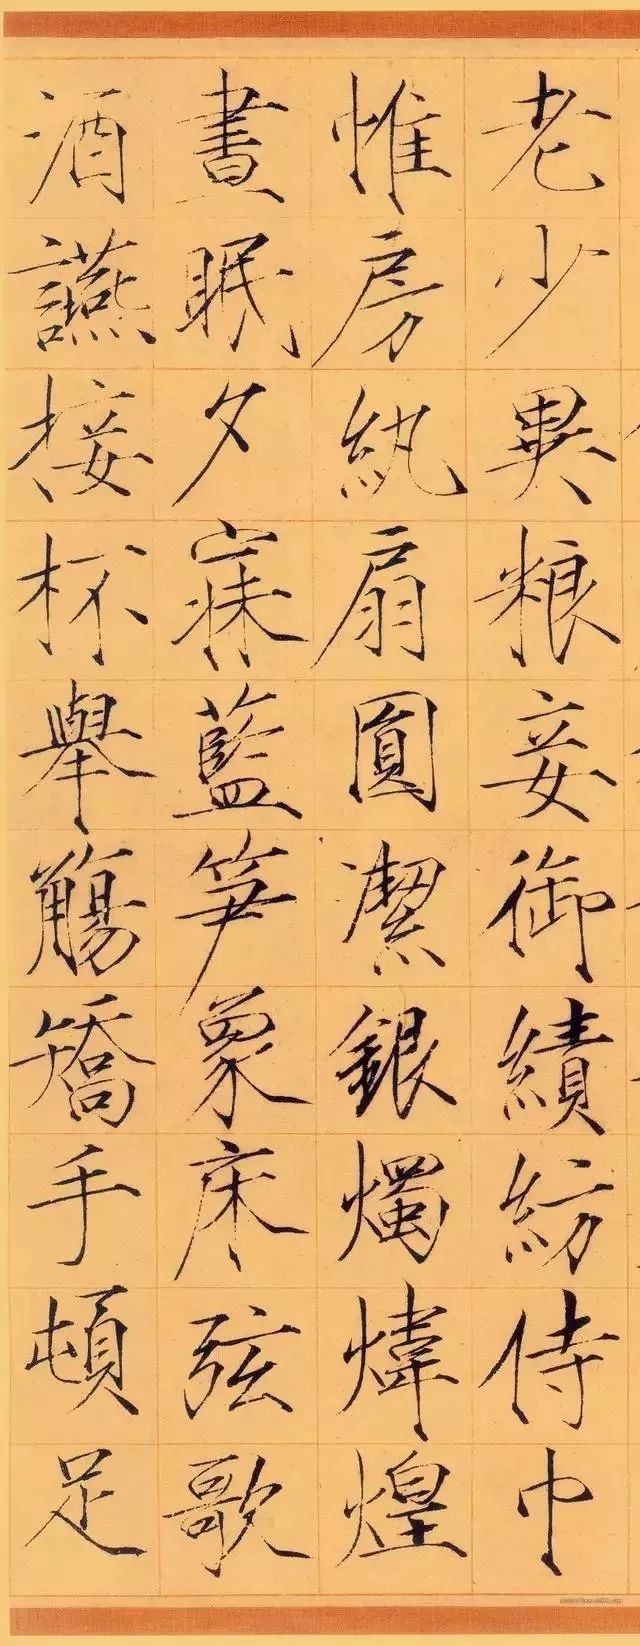 老少異粮妾御績紡侍巾
帷房紈扇圓潔銀燭煒煌
晝眠夕寐藍笋象床弦歌
酒讌接杯舉觴矯手頓足